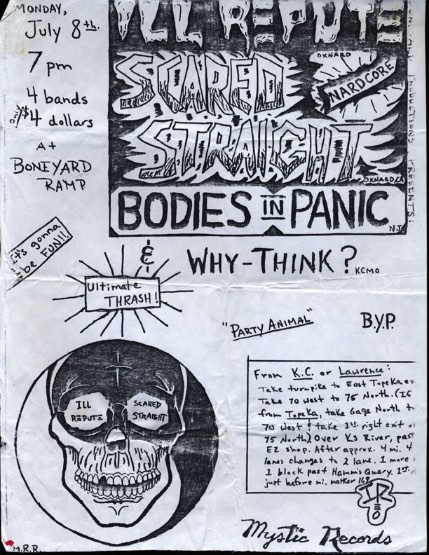 MONDAY,
July 8th.
7 pm
4 bands
4 dollars
AT
BONEYARD
RAMP
ILL REPUTE
OXNARD
NARDCORE
SCARED
STRAIGHT
OXNARD, CA
PRODUCTIONS PRESENTS:
BODIES IN PANIC
N.J.
It's gonna
be FUN!!
&
WHY-THINK? KCMO
Ultimate
THRASH!
"PARTY ANIMAL"
B.Y.P.
From K.C. or Lawrence:
Take turnpike to East Topeka ex
Take 70 west to 75 North. (If
from Topeka, take Gage North t
70 West & take 2nd. right exit o
75 North) Over Ks River, past
EZ shop. After approx. 4 mi. 4
lanes changes to 2 lane. 1 more
1 block past Hamm's Quary. 1st.
just before mi. marker 168
ILL
REPUTE
SCARED
STRAIGHT
IR
Mystic Records
M.R.R.